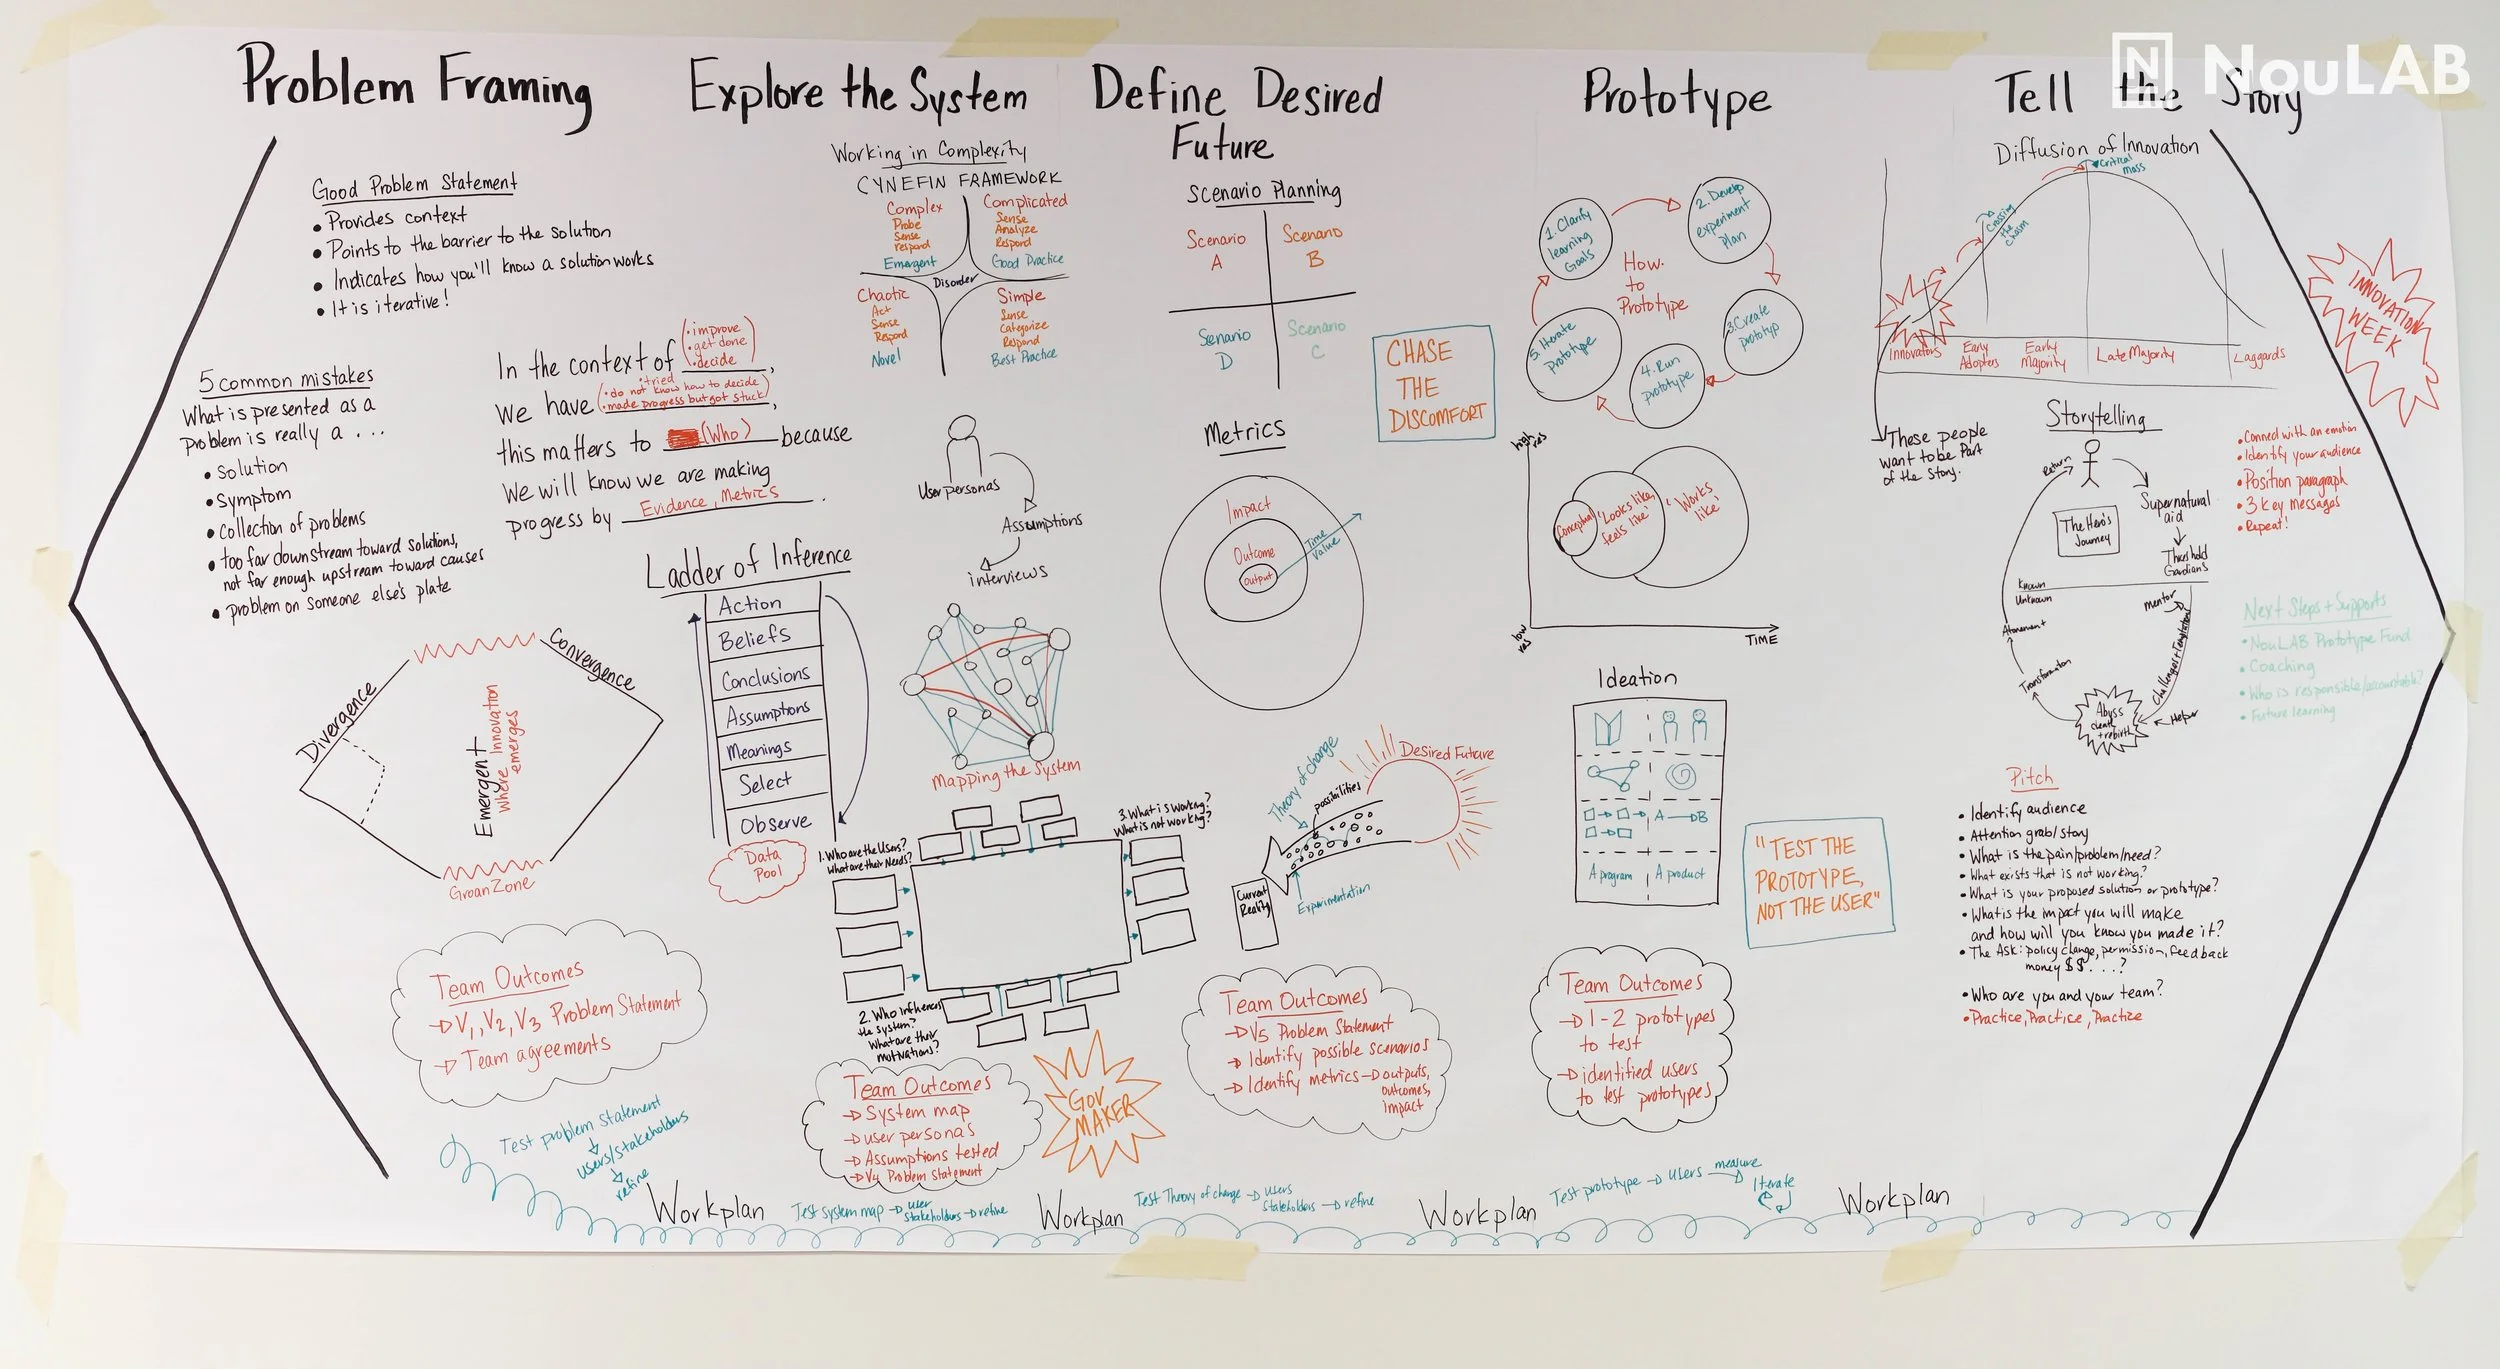 NouLAB
Problem Framing
Good Problem Statement
• Provides context
• Points to the barrier to the solution
• Indicates how you'll know a solution works
• It is iterative!
5 common mistakes
What is presented as a
problem is really a ...
• Solution
• Symptom
• Collection of problems
• too far downstream toward solutions,
not far enough upstream toward causes
• problem on someone else's plate
In the context of
• improve
• get done
• decide
,
we have
• tried
• do not know how to decide
• made progress but got stuck
,
this matters to (Who) because
We will know we are making
progress by Evidence, Metrics.
Divergence
Emergent
Where Innovation
emerges
Convergence
Groan Zone
Team Outcomes
→ V1, V2, V3 Problem Statement
→ Team agreements
Test problem statement
users/stakeholders
refine
Explore the System
Working in Complexity
CYNEFIN FRAMEWORK
Complex
Probe
Sense
respond
Emergent
Complicated
Sense
Analyze
Respond
Good Practice
Disorder
Chaotic
Act
Sense
Respond
Novel
Simple
Sense
Categorize
Respond
Best Practice
User personas
Assumptions
interviews
Ladder of Inference
Action
Beliefs
Conclusions
Assumptions
Meanings
Select
Observe
Data
Pool
Mapping the System
1. Who are the Users?
What are their Needs?
2. Who influences
the system?
What are their
motivations?
3. What is working?
What is not working?
Team Outcomes
→ System map
→ user personas
→ Assumptions tested
→ V4 Problem Statement
GOV
MAKER
Define Desired
Future
Scenario Planning
Scenario
A
Scenario
B
Senario
D
Scenario
C
CHASE
THE
DISCOMFORT
Metrics
Impact
Outcome
output
Time
Value
Theory of change
possibilities
Desired Future
Current
Reality
Experimentation
Team Outcomes
→ V5 Problem Statement
→ Identify possible scenarios
→ Identify metrics → outputs,
outcomes,
impact
Prototype
How
to
Prototype
1. Clarify
learning
Goals
2. Develop
experiment
plan
3. Create
prototyp
4. Run
prototype
5. Iterate
prototype
high
res
low
res
TIME
Conceptual
'Looks like,
feels like'
'Works
like'
Ideation
A → B
A program
A product
"TEST THE
PROTOTYPE,
NOT THE USER"
Team Outcomes
→ 1-2 prototypes
to test
→ identified users
to test prototypes
Tell the Story
Diffusion of Innovation
Critical
mass
Crossing
the chasm
Innovators
Early
Adopters
Early
Majority
Late Majority
Laggards
INNOVATION
WEEK
These people
want to be part
of the story.
Storytelling
• Connect with an emotion
• Identify your audience
• Position paragraph
• 3 key messages
• Repeat!
Return
Supernatural
aid
The Hero's
Journey
Threshold
Gardians
Known
Unknown
mentor
Challenges + Temptations
Helper
Abyss
death
+ rebirth
Transformation
Atonement
Next Steps + Supports
• NouLAB Prototype Fund
• Coaching
• Who is responsible/accountable?
• Future learning
Pitch
• Identify audience
• Attention grab/story
• What is the pain/problem/need?
• What exists that is not working?
• What is your proposed solution or prototype?
• What is the impact you will make
and how will you know you made it?
• The Ask: policy change, permission, feedback
money $$ ....?
• Who are you and your team?
• Practice, Practice, Practice
Workplan
Test system map → user
stakeholders → refine
Workplan
Test Theory of change → users
stakeholders → refine
Workplan
Test prototype → users → measure
Iterate
Workplan